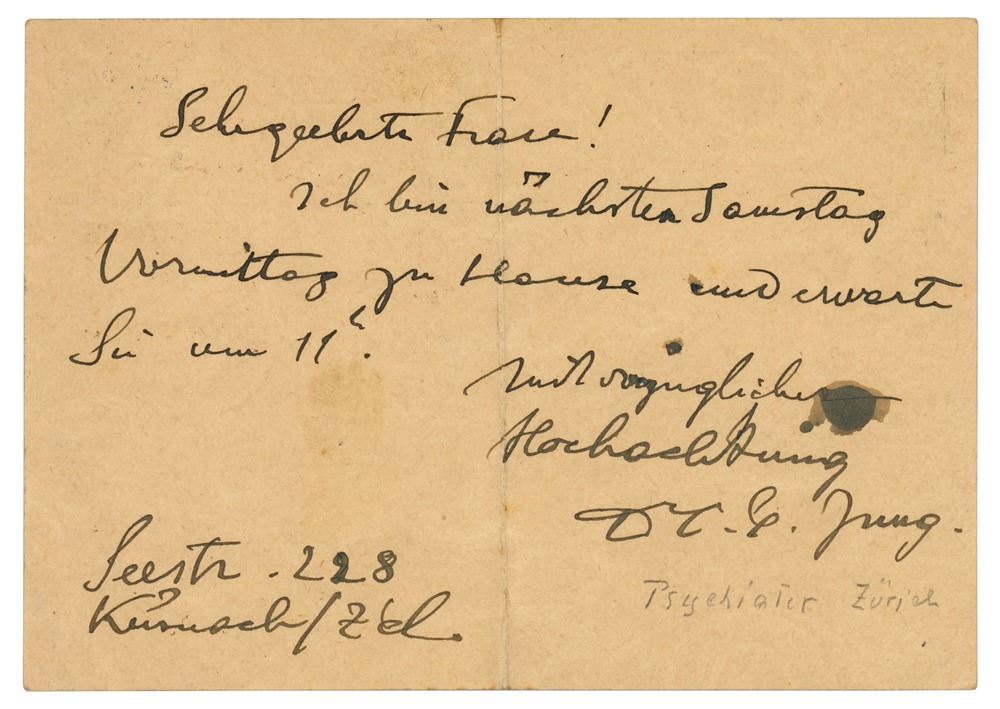 Sehrgeehrte Frau!
Ich bin nächsten Samstag
Vormittag zu Hause und erwarte
Sie um 11h.
Mit vorzüglicher
Hochachtung
Dr. C. Jung.
Seestr. 228
Küsnach/Zch.
Psychiater Zürich